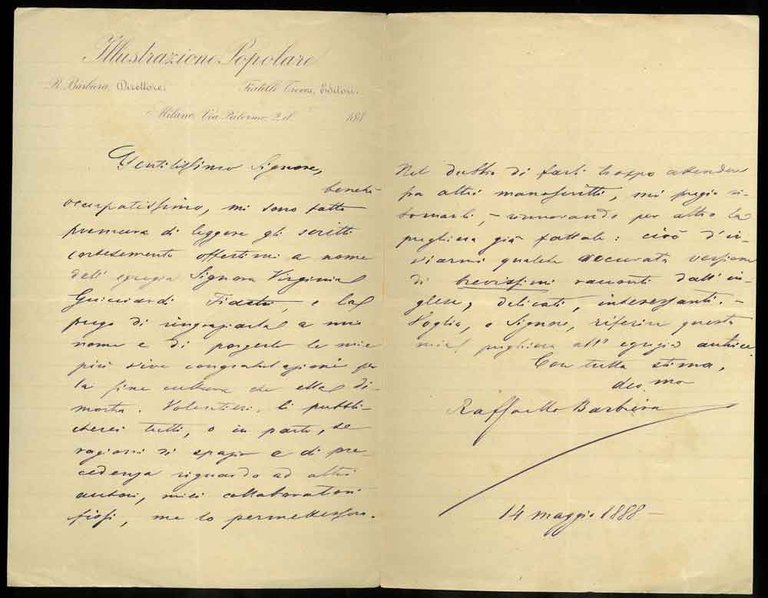 Illustrazione Popolare
R. Barbiera, Direttore. Fratelli Treves, Editori.
Milano, Via Palermo, 2. 188
Gentilissimo Signore,
benchè
occupatissimo, mi sono fatto
premura di leggere gli scritti
cortesemente offertimi a nome
dell'egregia Signora Virginia
Guicciardi Fiastri, e la
prego di ringraziarla a mio
nome e di porgerle le mie
più vive congratulazioni per
la fine cultura che ella di-
mostra. Volentieri, li pubbli-
cherei tutti, o in parte, se
ragioni di spazio e di pre-
cedenza riguardo ad altri
autori, miei collaboratori
fissi, me lo permettessero.
Nel dubbio di farli troppo attendere
fra altri manoscritti, mi pregio ri-
tornarli, - rinnovando per altro la
preghiera già fattale: cioè d'in-
viarmi qualche accurata versione
di brevissimi racconti dall'in-
glese, delicati, interessanti. -
Voglia, o Signore, riferire questa
mia preghiera all'egregia autrice.
Con tutta stima,
dev.mo
Raffaello Barbiera
14 maggio 1888 -